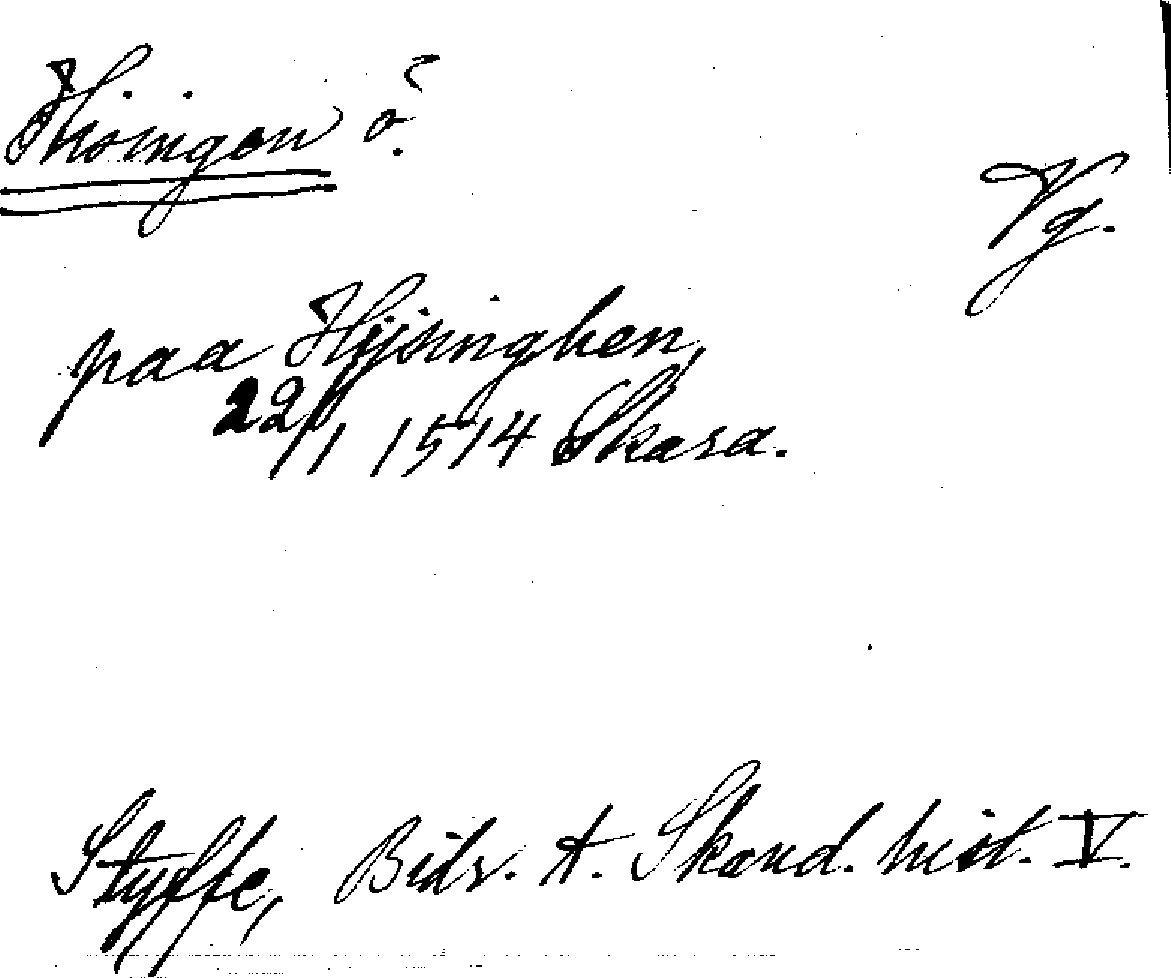 Hisingen ö.
Vg.
paa Hijsinghen,
22/1 1514 Skara.
Styffe, Bidr. t. Skand. hist. V.